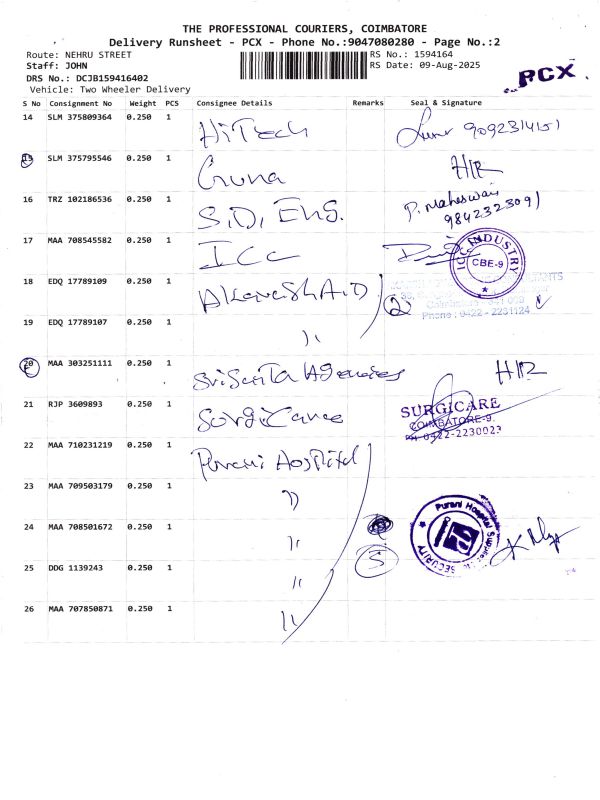 THE PROFESSIONAL COURIERS, COIMBATORE
Delivery Runsheet - PCX - Phone No.:9047080280 - Page No.:2
Route: NEHRU STREET
RS No.: 1594164
Staff: JOHN
RS Date: 09-Aug-2025
DRS No.: DCJB159416402
PCX
Vehicle: Two Wheeler Delivery
S No Consignment No Weight PCS Consignee Details Remarks Seal & Signature
14 SLM 375809364 0.250 1 HiTech 9092314151
15 SLM 375795546 0.250 1 Guna H/R
16 TRZ 102186536 0.250 1 S.D. ENG. P. Maheswari
9842323091
17 MAA 708545582 0.250 1 ICC
ICC INDUSTRY
CBE-9
18 EDQ 17789109 0.250 1 2
Phone : 0422 - 2231124
19 EDQ 17789107 0.250 1 ))
20 MAA 303251111 0.250 1 Agencies H/R
21 RJP 3609893 0.250 1 Surgicare
SURGICARE
COIMBATORE-9.
PH: 0422-2230023
22 MAA 710231219 0.250 1 Purani Hospital
23 MAA 709503179 0.250 1 ))
24 MAA 708501672 0.250 1 ))
5
Purani Hospital Supplies
SECURITY
25 DDG 1139243 0.250 1 ))
26 MAA 707850871 0.250 1 ))